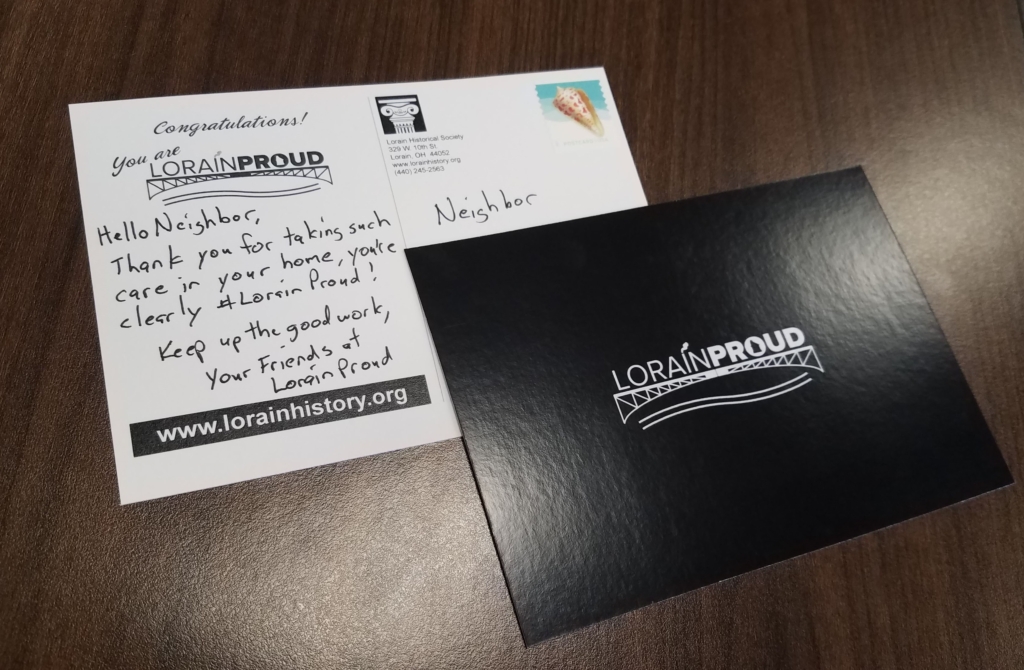 Congratulations!
You are
LORAINPROUD
Hello Neighbor,
Thank you for taking such
care in your home, you're
clearly #Lorain Proud!
Keep up the good work,
Your Friends at
Lorain Proud
www.lorainhistory.org
Lorain Historical Society
329 W. 10th St.
Lorain, OH 44052
www.lorainhistory.org
(440) 245-2563
Neighbor
LORAINPROUD